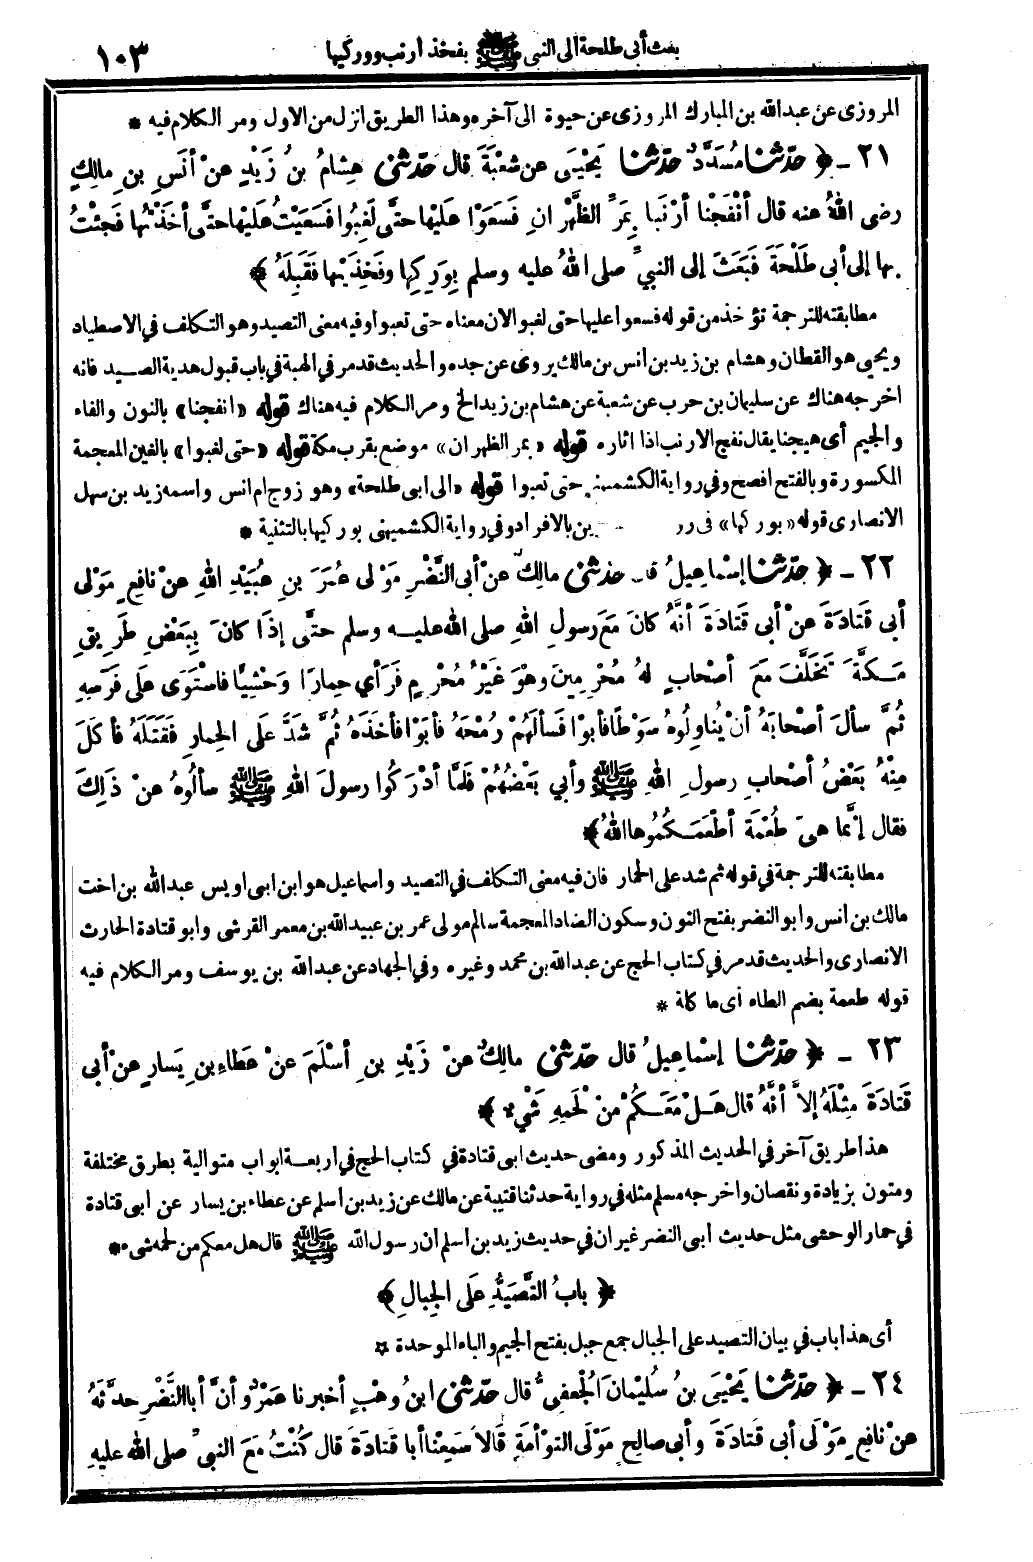 بعث أبى طلحة الى النبى ﷺ بفخذ أرنب ووركيها ١٠٣
المروزى عن عبدالله بن المبارك المروزى عن حيوة الى آخره وهذا الطريق انزل من الاول ومر الكلام فيه *
٢١ - ﴿ حدّثنا مُسَدَّدٌ حدّثنا يَحْيَى عن شعْبَةَ قال حدّثنى هِشامُ بنُ زَيْدٍ عنْ أنَسِ بنِ مالِكٍ
رضى اللهُ عنه قال أنْفَجْنا أرْنَبا بِمَرِّ الظَّهْرَانِ فَسَعَوْا عَلَيْها حتَّى لَغِبُوا فَسَعَيْتُ عَلَيْها حتَّى أخَذْتُها فَجِئْتُ
بها إلى أبى طَلْحَةَ فَبَعَثَ إلى النبىِّ صلى اللهُ عليه وسلم بِوَرِكِها وفَخِذَيْها فَقَبِلَهُ ﴾
مطابقته للترجمة تؤخذ من قوله فسعوا عليها حتى لغبوا لان معناه حتى تعبوا وفيه معنى التصيد وهو التكلف فى الاصطياد
ويحيى هو القطان وهشام بن زيد بن انس بن مالك يروى عن جده والحديث قد مر فى الهبة فى باب قبول هدية الصيد فانه
اخرجه هناك عن سليمان بن حرب عن شعبة عن هشام بن زيد الخ ومر الكلام فيه هناك قوله «انفجنا» بالنون والفاء
والجيم أى هيجنا يقال نفج الارنب اذا اثاره قوله «بمر الظهران» موضع بقرب مكة قوله «حتى لغبوا» بالغين المعجمة
المكسورة وبالفتح افصح وفى رواية الكشميهنى حتى تعبوا قوله «الى ابى طلحة» وهو زوج ام انس واسمه زيد بن سهل
الانصارى قوله «بوركها» فى رو ين بالافراد وفى رواية الكشميهنى بوركيها بالتثنية *
٢٢ - ﴿ حدّثنا إسْماعِيلُ قا حدّثنى مالِكٌ عنْ أبى النَّضْرِ مَوْلى عُمَرَ بنِ عُبَيْدِ اللهِ عنْ نافِعٍ مَوْلى
أبى قَتَادَةَ عنْ أبى قَتادَةَ أنَّهُ كانَ مَعَ رسولِ اللهِ صلى الله عليه وسلم حتَّى إذَا كانَ بِبَعْضِ طَرِيقِ
مَكَّةَ تَخَلَّفَ مَعَ أصْحابٍ لهُ مُحْرِمِينَ وهْوَ غَيْرُ مُحْرِمٍ فَرَأي حِمارًا وَحْشِيًّا فاسْتَوَى عَلَى فَرَسِهِ
ثُمَّ سألَ أصْحابَهُ أنْ يُناوِلُوهُ سَوْطًا فأبَوْا فَسألَهُمْ رُمْحَهُ فأبَوْا فأخَذَهُ ثُمَّ شَدَّ عَلَى الحِمارِ فَقَتَلَهُ فأكَلَ
مِنْهُ بَعْضُ أصْحابِ رسولِ اللهِ ﷺ وأبي بَعْضُهُمْ فَلَمَّا أدْرَكُوا رسولَ اللهِ ﷺ سألُوهُ عنْ ذَلِكَ
فقال إنَّما هىَ طُعْمَةٌ أطْعَمَكُمُوها اللهُ ﴾
مطابقته للترجمة فى قوله ثم شد على الحمار فان فيه معنى التكلف فى التصيد واسماعيل هو ابن ابى اويس عبدالله بن اخت
مالك بن أنس وابو النضر بفتح النون وسكون الضاد المعجمة سالم مولى عمر بن عبيدالله بن معمر القرشى وابو قتادة الحارث
الانصارى والحديث قد مر فى كتاب الحج عن عبدالله بن محمد وغيره وفى الجهاد عن عبدالله بن يوسف ومر الكلام فيه
قوله طعمة بضم الطاء أى ما كلة *
٢٣ - ﴿ حدّثنا إسْماعِيلُ قال حدّثنى مالِكٌ عنْ زَيْدِ بنِ أسْلَمَ عنْ عَطاءِ بنِ يَسارٍ عنْ أبى
قَتَادَةَ مِثْلَهُ إلاَّ أنَّهُ قال هَلْ مَعَكُمْ مِنْ لَحْمِهِ شَيْءٌ ﴾
هذا طريق آخر فى الحديث المذكور ومضى حديث ابى قتادة فى كتاب الحج فى اربعة ابواب متوالية بطرق مختلفة
ومتون بزيادة ونقصان واخرجه مسلم مثله فى رواية حدثنا قتيبة عن مالك عن زيد بن أسلم عن عطاء بن يسار عن ابى قتادة
فى حمار الوحشى مثل حديث أبى النضر غير ان فى حديث زيد بن أسلم أن رسول الله ﷺ قال هل معكم من لحمه شىء *
﴿ بابُ التَّصَيُّدِ عَلَى الجِبالِ ﴾
أى هذا باب فى بيان التصيد على الجبال جمع جبل بفتح الجيم والباء الموحدة *
٢٤ - ﴿ حدّثنا يَحْيَى بنُ سُلَيْمانَ الجُعفىُّ قال حدّثنى ابنُ وهْبٍ أخبرنا عَمْرٌو أنَّ أبا النَّضْرِ حدَّثَهُ
عنْ نافِعٍ مَوْلَى أبى قَتادَةَ وأبى صالِحٍ مَوْلَى التوْأمَةِ قالاَ سَمِعْنا أبا قَتادَةَ قال كُنْتُ مَعَ النبىِّ صلى الله عليهِ